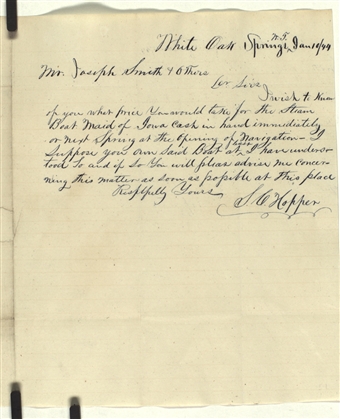 White Oak Springs, W. T. Jan 10/44
Mr. Joseph Smith & Others
Dr Sirs,
I wish to know
of you what price You would take for the Steam
Boat Maid of Iowa Cash in hand immediately
or next spring at the opening of Navigation - I
suppose you own said Boat at least I have unders-
tood so and if so You will please advise me concer-
ning this matter as soon as possible at this place
Respfully Yours
Hopper